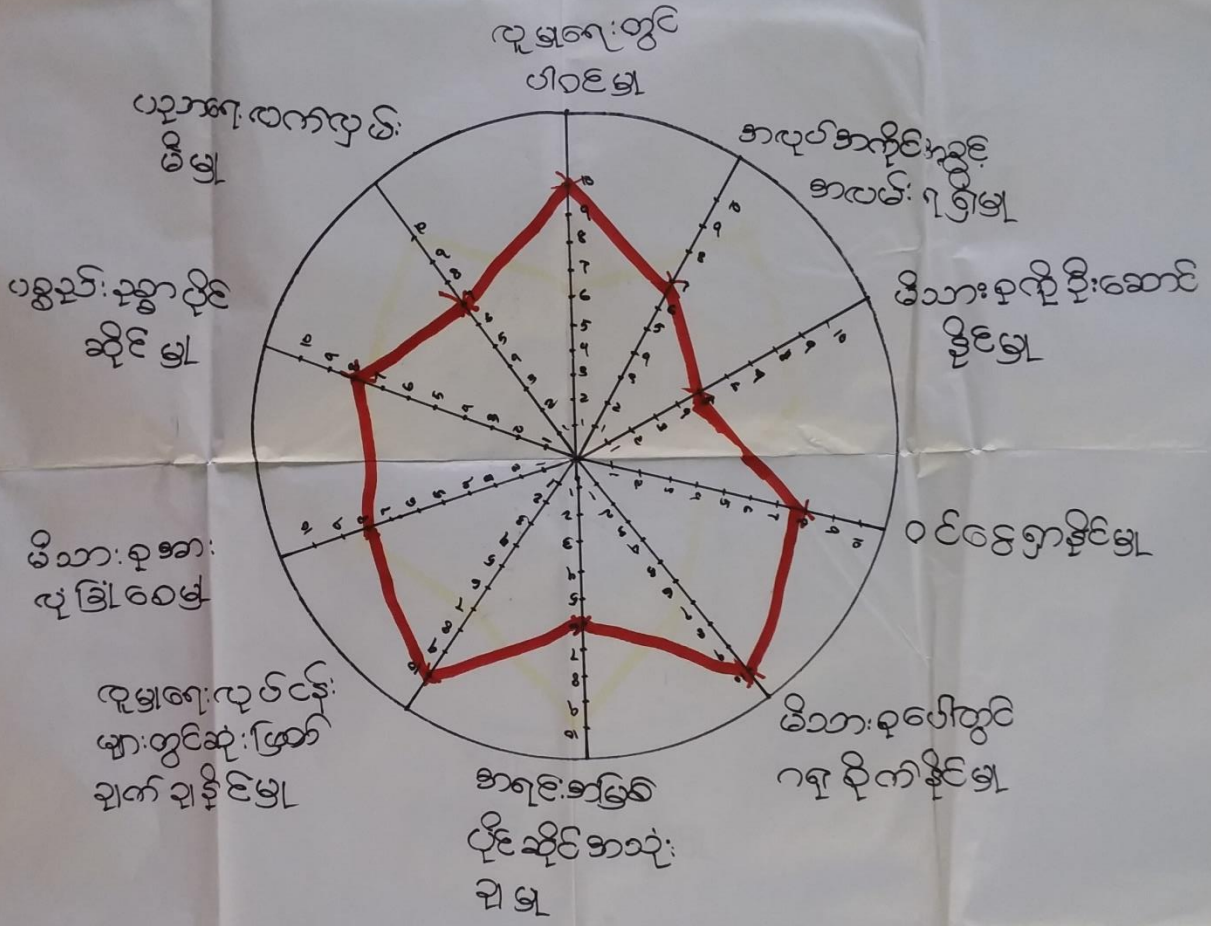 လူမှုရေးတွင်
ပါဝင်မှု
အလုပ်အကိုင်အခွင့်
အလမ်းရရှိမှု
မိသားစုကိုဦးဆောင်
နိုင်မှု
ဝင်ငွေရှာနိုင်မှု
မိသားစုပေါ်တွင်
ဂရုစိုက်နိုင်မှု
အရင်းအမြစ်
ပိုင်ဆိုင်အသုံး
ချမှု
လူမှုရေးလုပ်ငန်း
များတွင်ဆုံးဖြတ်
ချက်ချနိုင်မှု
မိသားစုအား
လုံခြုံစေမှု
ပစ္စည်းဥစ္စာပိုင်
ဆိုင်မှု
ပညာရေးလက်လှမ်း
မီမှု